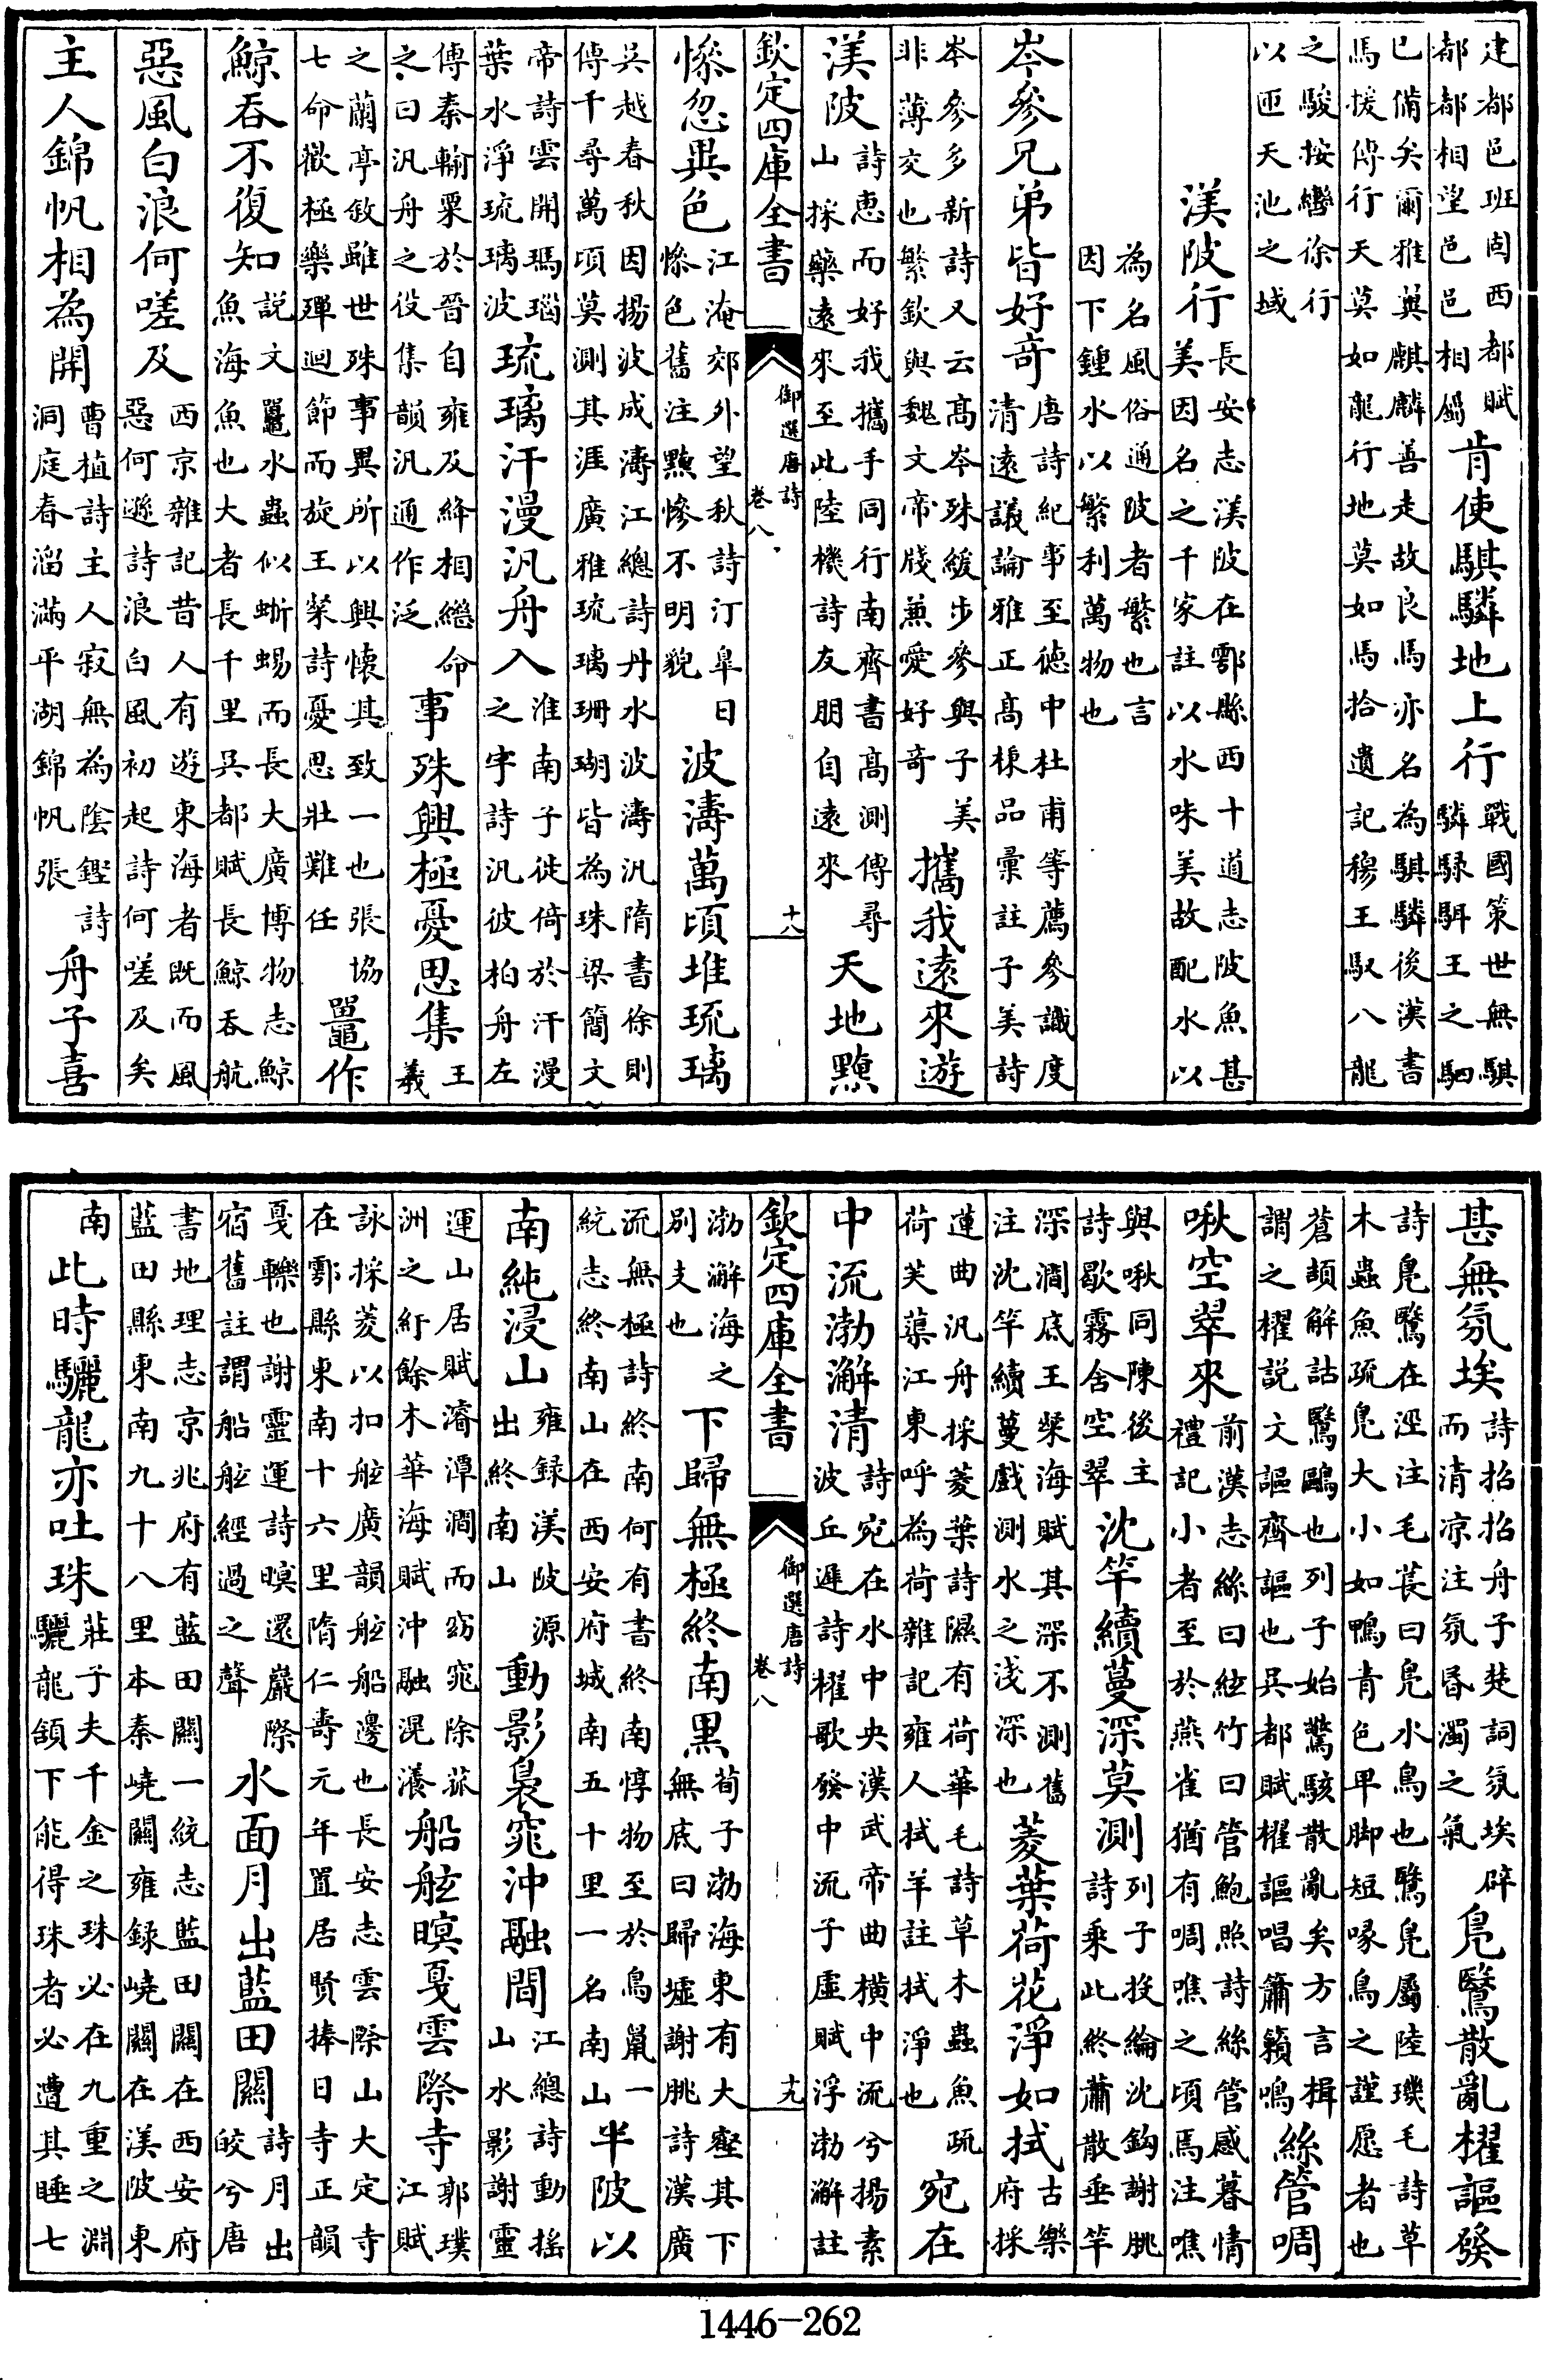 建都邑班固西都賦都都相望邑邑相屬肯使騏驎地上行戰國策世無騏驎騄駬王之駟
已備矣爾雅異麒麟善走故良馬亦名為騏驎後漢書馬援傳行天莫如龍行地莫如馬拾遺記穆王馭八龍
之駿按轡徐行以匝天池之域
渼陂行長安志渼陂在鄠縣西十道志陂魚甚美因名之千家註以水味美故配水以
為名風俗通陂者繁也言因下鍾水以繁利萬物也
岑參兄弟皆好奇唐詩紀事至德中杜甫等薦參識度清遠議論雅正髙棅品彙註子美詩
岑參多新詩又云髙岑殊緩步參與子美非薄交也繁欽與魏文帝牋兼愛好奇攜我遠來遊
渼陂詩惠而好我攜手同行南齊書髙測傳尋山採藥遠來至此陸機詩友朋自遠來天地黤
欽定四庫全書 御選唐詩 卷八 十八
慘忽異色江淹郊外望秋詩汀臯日慘色舊注黤慘不明貌波濤萬頃堆琉璃
吳越春秋因揚波成濤江總詩丹水波濤汎隋書徐則傳千尋萬頃莫測其涯廣雅琉璃珊瑚皆為珠梁簡文
帝詩雲開瑪瑙葉水淨琉璃波琉璃汗漫汎舟入淮南子徙倚於汗漫之宇詩汎彼柏舟左
傳秦輸粟於晉自雍及絳相繼命之曰汎舟之役集韻汎通作泛事殊興極憂思集王羲
之蘭亭敘雖世殊事異所以興懷其致一也張協七命歡極樂殫迴節而旋王粲詩憂思壯難任鼉作
鯨吞不復知説文鼉水蟲似蜥蜴而長大廣博物志鯨魚海魚也大者長千里吳都賦長鯨吞航
惡風白浪何嗟及西京雜記昔人有遊東海者既而風惡何遜詩浪白風初起詩何嗟及矣
主人錦帆相為開曹植詩主人寂無為陰鏗詩洞庭春溜滿平湖錦帆張舟子喜
甚無氛埃詩招招舟子楚詞氛埃辟而清凉注氛昬濁之氣鳬鷖散亂櫂謳發
詩鳬鷖在涇注毛萇曰鳬水鳥也鷖鳬屬陸璣毛詩草木蟲魚疏鳬大小如鴨青色甲脚短喙鳥之謹愿者也
蒼頡解詁鷖鷗也列子始驚駭散亂矣方言楫謂之櫂説文謳齊謳也吳都賦櫂謳唱簫籟鳴絲管啁
啾空翠來前漢志絲曰絃竹曰管鮑照詩絲管感暮情禮記小者至於燕雀猶有啁噍之頃焉注噍
與啾同陳後主詩歇霧含空翠沈竿續蔓深莫測列子投綸沈鈎謝朓詩乘此終蕭散垂竿
深澗底王粲海賦其深不測舊注沈竿續蔓戲測水之淺深也菱葉荷花淨如拭古樂府採
蓮曲汎舟採菱葉詩隰有荷華毛詩草木蟲魚疏荷芙蕖江東呼為荷雜記雍人拭羊註拭淨也宛在
中流渤澥清詩宛在水中央漢武帝曲橫中流兮揚素波丘遲詩櫂歌發中流子虛賦浮渤澥註
欽定四庫全書 御選唐詩 卷八 十九
渤澥海之別支也下歸無極終南黒荀子渤海東有大壑其下無底曰歸墟謝朓詩漢廣
流無極詩終南何有書終南惇物至於鳥鼠一統志終南山在西安府城南五十里一名南山半陂以
南純浸山雍録渼陂源出終南山動影裊窕沖融間江總詩動搖山水影謝靈
運山居賦濬潭澗而窈窕除菰洲之紆餘木華海賦沖融滉瀁船舷暝戛雲際寺郭璞江賦
詠採菱以扣舷廣韻舷船邊也長安志雲際山大定寺在鄠縣東南十六里隋仁壽元年置居賢捧日寺正韻
戛轢也謝靈運詩暝還巖際宿舊註謂船舷經過之聲水面月出藍田關詩月出皎兮唐
書地理志京兆府有藍田關一統志藍田關在西安府藍田縣東南九十八里本秦嶢關雍録嶢關在渼陂東
南此時驪龍亦吐珠莊子夫千金之珠必在九重之淵驪龍頷下能得珠者必遭其睡七
1446-262